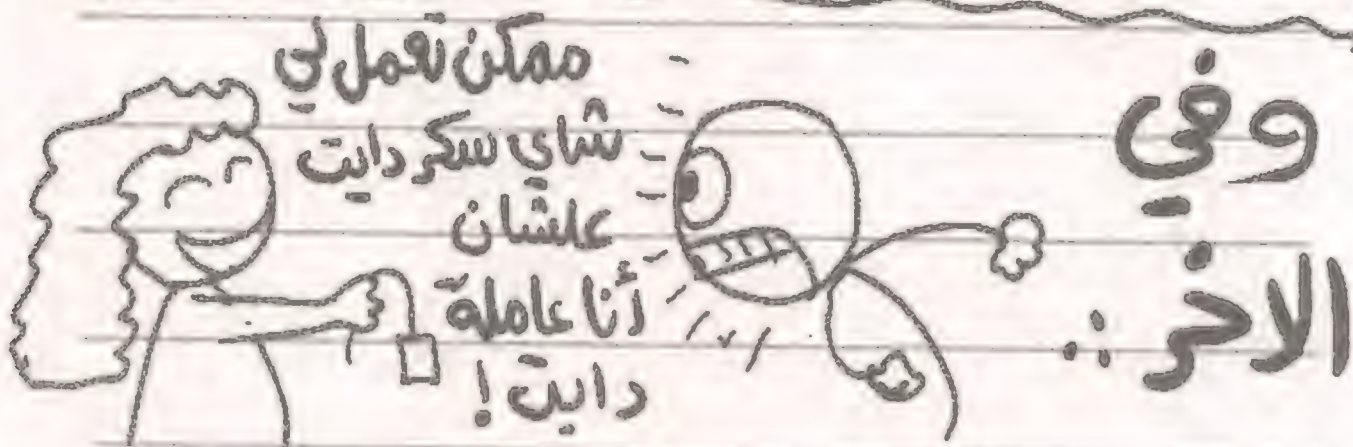 وفي
الاخر :
ممكن تعمل لي
شاي سكر دايت
علشان
أنا عاملة
دايت !